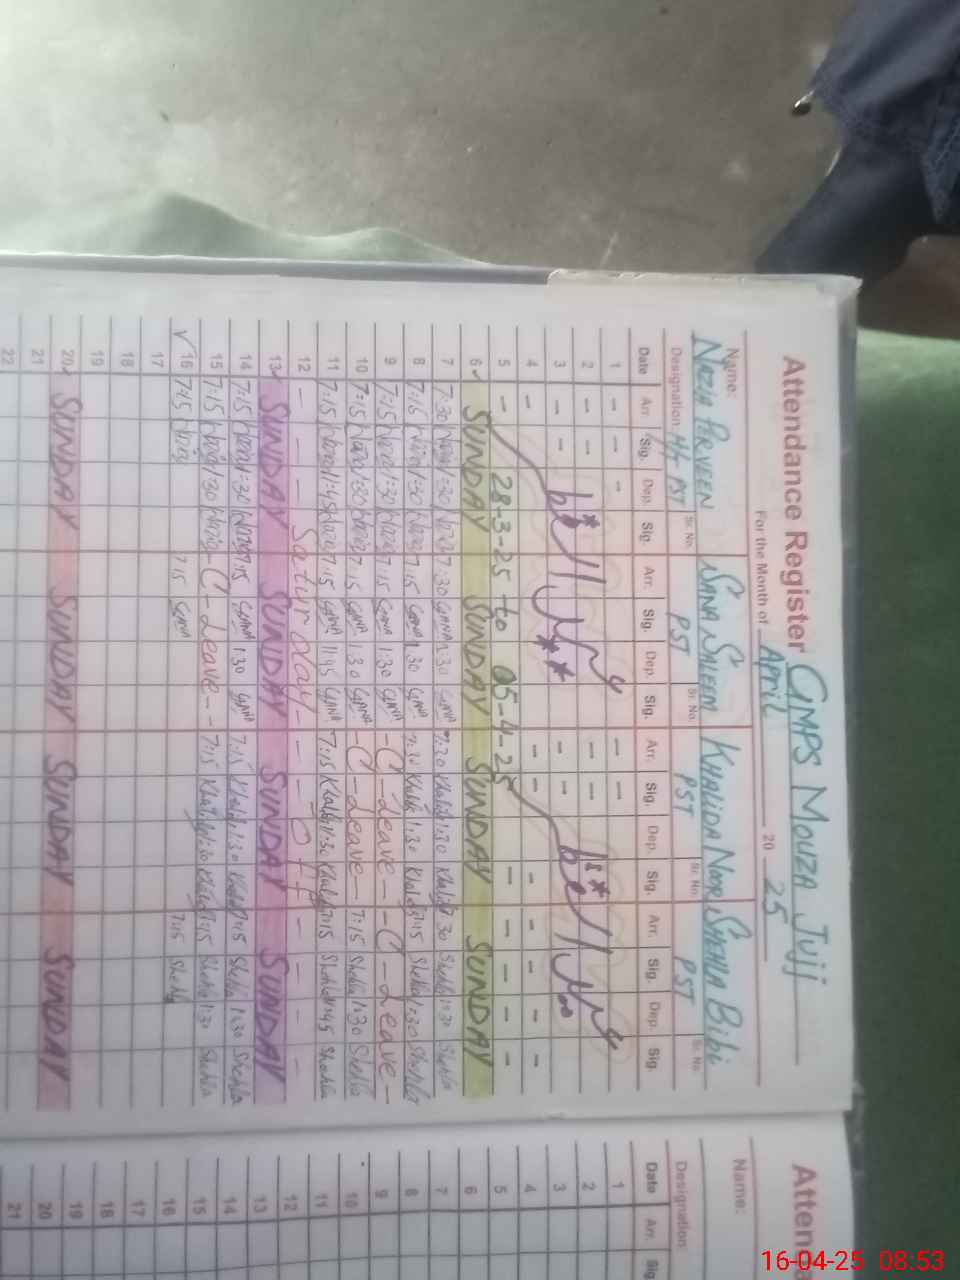 Attendance Register GMPS Mouza Jujj
For the Month of April 20 25
Name: Nazia Perveen Sana Saleem Khalida Noor Shehla Bibi
Designation: PST Sr. No. PST Sr. No. PST Sr. No. PST Sr. No.
Date Arr. Sig. Dep. Sig. Arr. Sig. Dep. Sig. Arr. Sig. Dep. Sig. Arr. Sig. Dep. Sig.
1 - - - - -
2 - - - -
3 - - - -
4 - - - - - -
5 - 28-3-25 to 05-4-25 - - - -
6 SUNDAY SUNDAY SUNDAY SUNDAY
7 7:30 1:30 7:30 SANA 1:30 7:30 Khalida 1:30 Khalida 7:30 Shehla 1:30 Shehla
8 7:15 1:30 7:15 SANA 1:30 SANA 7:30 Khalida 1:30 Khalida 7:15 Shehla 1:30 Shehla
9 7:15 1:30 7:15 SANA 1:30 SANA - C - Leave - C - Leave -
10 7:15 1:30 7:15 SANA 1:30 SANA - C - Leave - 7:15 Shehla 1:30 Shehla
11 7:15 11:45 7:15 SANA 11:45 SANA 7:15 Khalida 11:30 Khalida 7:15 Shehla 11:45 Shehla
12 - - - - Saturday - - - OFF - - - -
13 SUNDAY SUNDAY SUNDAY SUNDAY
14 7:15 1:30 7:15 SANA 1:30 SANA 7:15 Khalida 1:30 Khalida 7:15 Shehla 1:30 Shehla
15 7:15 1:30 - C - Leave - - 7:15 Khalida 1:30 Khalida 7:15 Shehla 1:30 Shehla
16 7:15 Nazia 7:15 SANA 7:15 Shehla
17
18
19
20 SUNDAY SUNDAY SUNDAY SUNDAY
21
22
Atten
Name:
Designation
Date Arr. Sig
1
2
3
4
5
6
7
8
9
10
11
12
13
14
15
16
17
18
19
20
21
16-04-25 08:53